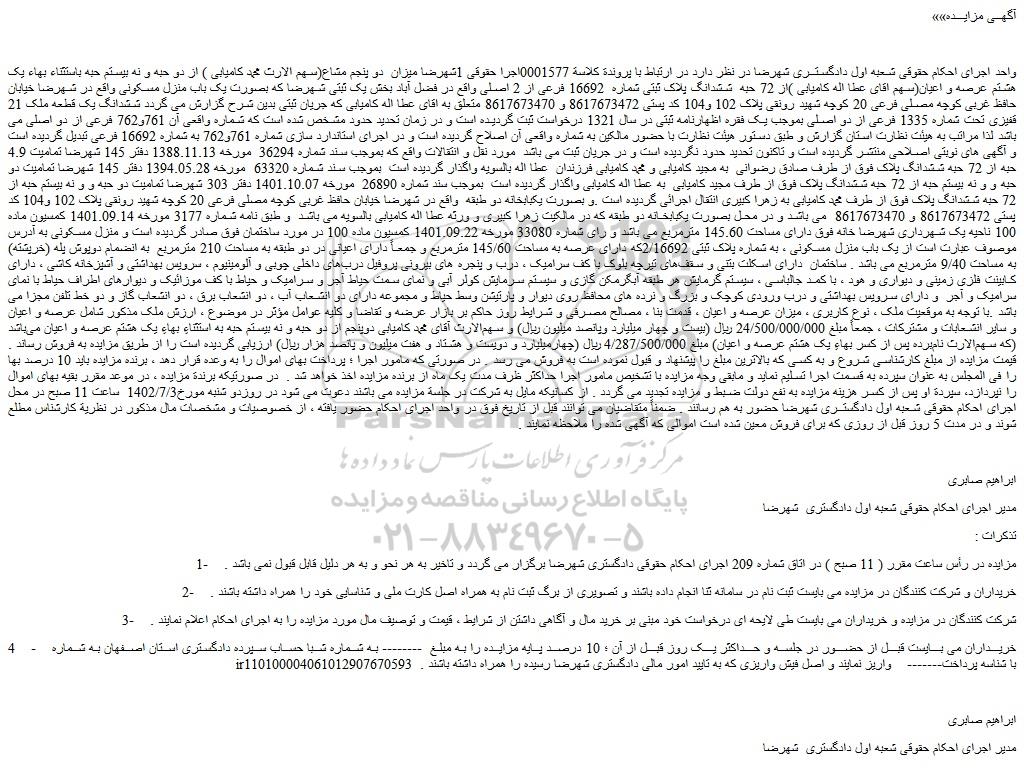 آگهـی مزایـــده»»
واحد اجرای احکام حقوقی شعبه اول دادگستـری شهرضا در نظر دارد در ارتباط با پروندة کلاسة 0001577اجرا حقوقی 1شهرضا میزان  دو پنجم مشاع(سهم الارث محمد کامیابی ) از دو حبه و نه بیستم حبه باستثناء بهاء یک
هشتم عرصه و اعیان(سهم اقای عطا اله کامیابی )از 72 حبه  ششدانگ پلاک ثبتی شماره  16692 فرعی از 2 اصلی واقع در فضل آباد بخش یک ثبتی شهرضا که بصورت یک باب منزل مسکونی واقع در شهرضا خیابان
حافظ غربی کوچه مصلی فرعی 20 کوچه شهید رونقی پلاک 102 و104 کد پستی 8617673472 و 8617673470 متعلق به اقای عطا اله کامیابی که جریان ثبتی بدین شرح گزارش می گردد ششدانگ یک قطعه ملک 21
قفیزی تحت شماره 1335 فرعی از دو اصلی بموجب یک فقره اظهارنامه ثبتی در سال 1321 درخواست ثبت گردیده است و در زمان تحدید حدود مشخص شده است که شماره واقعی آن 761و762 فرعی از دو اصلی می
باشد لذا مراتب به هیئت نظارت استان گزارش و طبق دستور هیئت نظارت با حضور مالکین به شماره واقعی آن اصلاح گردیده است و در اجرای استاندارد سازی شماره 761و762 به شماره 16692 فرعی تبدیل گردیده است
و آگهی های نوبتی اصلاحی منتشر گردیده است و تاکنون تحدید حدود نگردیده است و در جریان ثبت می باشد  مورد نقل و انتقالات واقع که بموجب سند شماره  36294  مورخه 1388.11.13 دفتر 145 شهرضا تمامیت 4.9
حبه از 72 حبه ششدانگ پلاک فوق از طرف صادق رضوانی  به مجید کامیابی و محمد کامیابی فرزندان  عطا اله بالسویه واگذار گردیده است  بموجب سند شماره  63320  مورخه 1394.05.28 دفتر 145 شهرضا تمامیت دو
حبه و و نه بیستم حبه از 72 حبه ششدانگ پلاک فوق از طرف مجید کامیابی  به عطا اله کامیابی واگذار گردیده است  بموجب سند شماره 26890  مورخه 1401.10.07 دفتر 303 شهرضا تمامیت دو حبه و و نه بیستم حبه از
72 حبه ششدانگ پلاک فوق از طرف محمد کامیابی به زهرا کبیری انتقال اجرائی گردیده است .و بصورت یکبابخانه دو طبقه  واقع در شهرضا خیابان حافظ غربی کوچه مصلی فرعی 20 کوچه شهید رونقی پلاک 102 و104 کد
پستی 8617673472 و 8617673470  می باشد و در محل بصورت یکبابخانه دو طبقه که در مالکیت زهرا کبیری و ورثه عطا اله کامیابی بالسویه می باشد  و طبق نامه شماره 3177 مورخه 1401.09.14 کمسیون ماده
100 ناحیه یک شهرداری شهرضا خانه فوق دارای مساحت 145.60 مترمربع می باشد و رای شماره 33080 مورخه 1401.09.22 کمسیون ماده 100 در مورد ساختمان فوق صادر گردیده است و منزل مسکونی به آدرس
موصوف عبارت است از یک باب منزل مسکونی ، به شماره پلاک ثبتی 2/16692که دارای عرصه به مساحت 145/60 مترمربع و جمعاً دارای اعیانی در دو طبقه به مساحت 210 مترمربع  به انضمام دوپوش پله (خرپشته)
به مساحت 9/40 مترمربع می باشد . ساختمان  دارای اسکلت بتنی و سقفهای تیرچه بلوک با کف سرامیک ، درب و پنجره های بیرونی پروفیل دربهای داخلی چوبی و آلومینیوم ، سرویس بهداشتی و آشپزخانه کاشی ، دارای
کابینت فلزی زمینی و دیواری و هود ، با کمد جالباسی ، سیستم گرمایش هر طبقه آبگرمکن گازی و سیستم سرمایش کولر آبی و نمای سمت حیاط آجر و سرامیک و حیاط با کف موزائیک و دیوارهای اطراف حیاط با نمای
سرامیک و آجر  و دارای سرویس بهداشتی و درب ورودی کوچک و بزرگ و نرده های محافظ روی دیوار و پارتیشن وسط حیاط و مجموعه دارای دو انشعاب آب ، دو انشعاب برق ، دو انشعاب گاز و دو خط تلفن مجزا می
باشد .با توجه به موقعیت ملک ، نوع کاربری ، میزان عرصه و اعیان ، قدمت بنا ، مصالح مصرفی و شرایط روز حاکم بر بازار عرضه و تقاضا و کلیه عوامل مؤثر در موضوع ، ارزش ملک مذکور شامل عرصه و اعیان
و سایر انشعابات و مشترکات ، جمعاً مبلغ 24/500/000/000 ریال (بیست و چهار میلیارد وپانصد میلیون ریال) و سهمالارث آقای محمد کامیابی دوپنجم از دو حبه و نه بیستم حبه به استثناءِ بهاءِ یک هشتم عرصه و اعیان میباشد
(که سهمالارث نامبرده پس از کسر بهاء یک هشتم عرصه و اعیان) مبلغ 4/287/500/000 ریال (چهارمیلیارد و دویست و هشتاد و هفت میلیون و پانصد هزار ریال) ارزیابی گردیده است را از طریق مزایده به فروش رساند .
قیمت مزایده از مبلغ کارشناسی شروع و به کسی که بالاترین مبلغ را پیشنهاد و قبول نموده است به فروش می رسد . در صورتی که مامور اجرا ؛ پرداخت بهای اموال را به وعده قرار دهد ، برنده مزایده باید 10 درصد بها
را فی المجلس به عنوان سپرده به قسمت اجرا تسلیم نماید و مابقی وجه مزایده با تشخیص مامور اجرا حداکثر ظرف مدت یک ماه از برنده مزایده اخذ خواهد شد .  در صورتیکه برندة مزایده ، در موعد مقرر بقیه بهای اموال
را نپردازد، سپردة او پس از کسر هزینه مزایده به نفع دولت ضبط و مزایده تجدید می گردد . از کسانیکه مایل به شرکت در جلسة مزایده می باشند دعوت می شود در روزدو شنبه مورخ1402/7/3  ساعت 11 صبح در محل
اجرای احکام حقوقی شعبه اول دادگستـری شهرضا حضور به هم رسانند . ضمناً متقاضیان می توانند قبل از تاریخ فوق در واحد اجرای احکام حضور یافته ، از خصوصیات و مشخصات مال مذکور در نظریة کارشناس مطلع
شوند و در مدت 5 روز قبل از روزی که برای فروش معین شده است اموالی که آگهی شده را ملاحظه نمایند .
ParsNamadData
مرکز فرآوری اطلاعات پارس نماد داده ها
ابراهیم صابری
پایگاه اطلاع رسانی مناقصه و مزایده
مدیر اجرای احکام حقوقی شعبه اول دادگستری  شهرضا
۰۲۱-۸۸۳۴۹۶۷۰-۵
تذکرات :
مزایده در رأس ساعت مقرر ( 11 صبح ) در اتاق شماره 209 اجرای احکام حقوقی دادگستری شهرضا برگزار می گردد و تاخیر به هر نحو و به هر دلیل قابل قبول نمی باشد .    -1
خریداران و شرکت کنندگان در مزایده می بایست ثبت نام در سامانه ثنا انجام داده باشند و تصویری از برگ ثبت نام به همراه اصل کارت ملی و شناسایی خود را همراه داشته باشند .    -2
شرکت کنندگان در مزایده و خریداران می بایست طی لایحه ای درخواست خود مبنی بر خرید مال و آگاهی داشتن از شرایط ، قیمت و توصیف مال مورد مزایده را به اجرای احکام اعلام نمایند .    -3
خریـداران می بـایست قبـل از حضـور در جلسـه و حـداکثر یـک روز قبـل از آن ؛ 10 درصـد پـایه مزایـده را بـه مبلـغ  -------- بـه شـماره شـبا حساب سـپرده دادگستری استان اصـفهان بـه شـماره    -    4
ir110100004061012907670593  با شناسه پرداخت-------    واریز نمایند و اصل فیش واریزی که به تایید امور مالی دادگستری شهرضا رسیده را همراه داشته باشند .
ابراهیم صابری
مدیر اجرای احکام حقوقی شعبه اول دادگستری  شهرضا